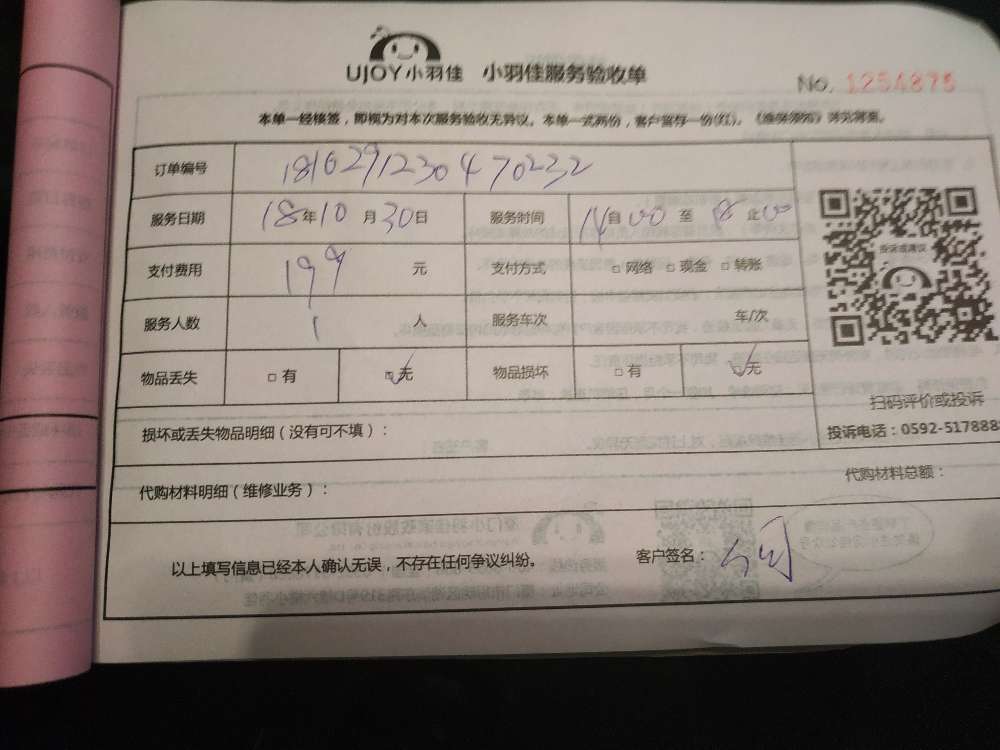 UJOY小羽佳 小羽佳服务验收单
No. 1254875
本单一经核签，即视为对本次服务验收无异议。本单一式两份，客户留存一份(红)。《维保须知》详见背面。
订单编号 181629123047０232
服务日期 18年10月30日 服务时间 14自00至18止00
支付费用 199元 支付方式 □网络 □现金 □转账
服务人数 1人 服务车次 车/次
物品丢失 □有 ☑无 物品损坏 □有 ☑无
投诉或建议
扫码评价或投诉
损坏或丢失物品明细（没有可不填）：
投诉电话：0592-5178888
代购材料明细（维修业务）： 代购材料总额：
以上填写信息已经本人确认无误，不存在任何争议纠纷。 客户签名：